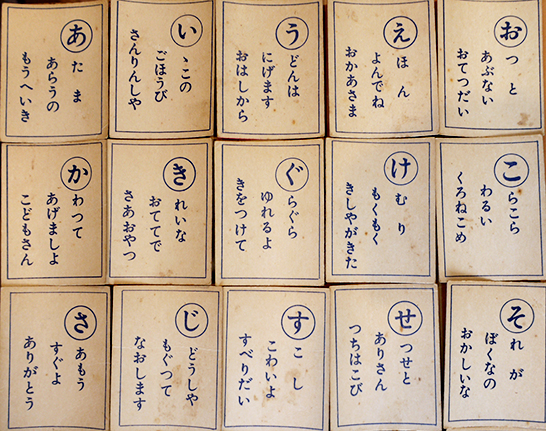 あたま
あらうの
もうへいき
いゝこの
ごほうび
さんりんしや
うどんは
にげます
おはしから
えほん
よんでね
おかあさま
おつと
あぶない
おてつだい
かわつて
あげましよ
こどもさん
きれいな
おててで
さあおやつ
ぐらぐら
ゆれるよ
きをつけて
けむり
もくもく
きしやがきた
こらこら
わるい
くろねこめ
さあもう
すぐよ
ありがとう
じどうしや
もぐつて
なおします
すこし
こわいよ
すべりだい
せつせと
ありさん
つちはこび
それが
ぼくなの
おかしいな